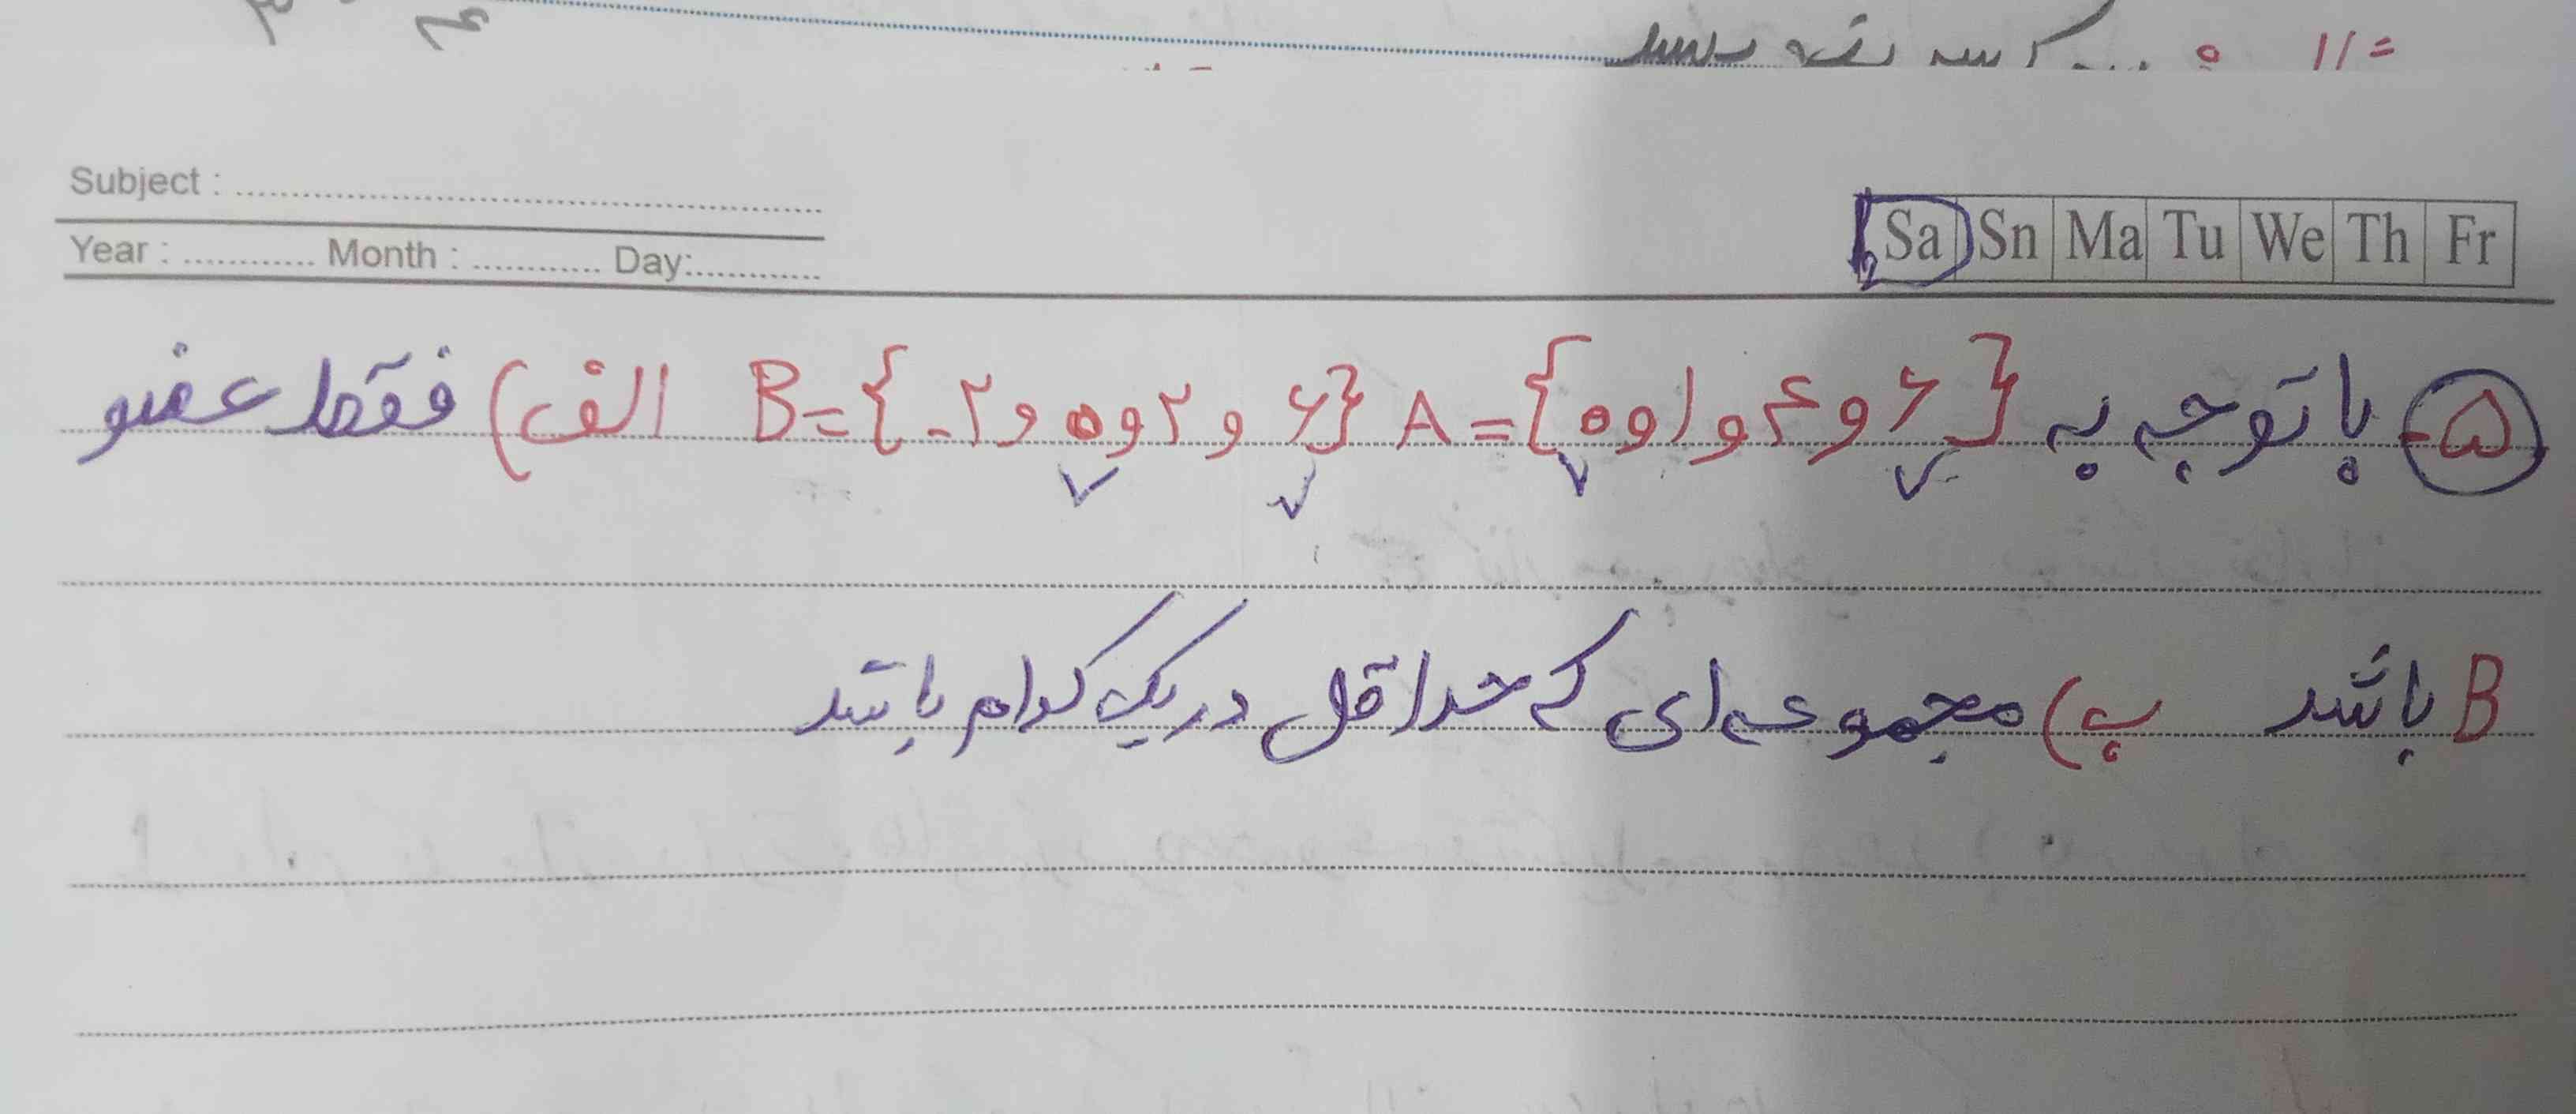 = 11
Subject :
Sa Sn Ma Tu We Th Fr
Year : Month : Day:
۵- با توجه به A = {۵ و ۱ و ۴ و ۶} B = {-۲ و ۵ و ۲ و ۶} الف) فقط عضو
B باشد ب) مجموعه ای که حداقل در یک کدام باشد